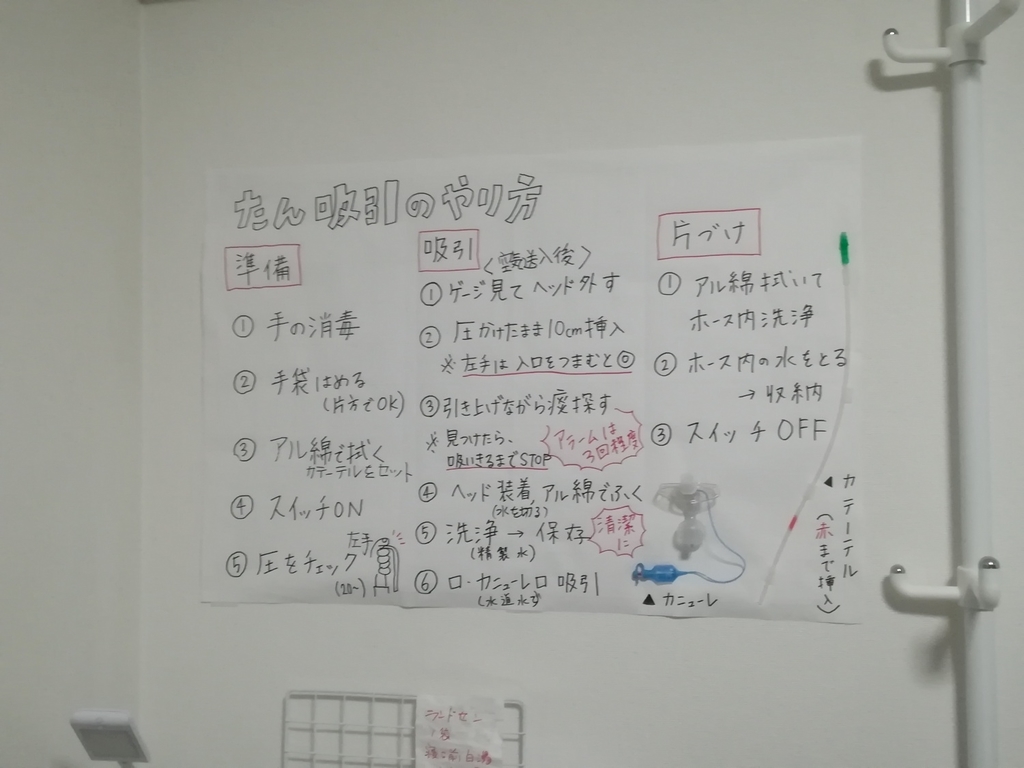 たん吸引のやり方
準備
① 手の消毒
② 手袋はめる
(片方でOK)
③ アル綿で拭く
カテーテルをセット
④ スイッチON
⑤ 圧をチェック
左手
(20~)
吸引
送入後〉
① ゲージ見てヘッド外す
② 圧かけたまま10cm挿入
※ 左手は入口をつまむと◎
③ 引き上げながら痰探す
※ 見つけたら、
吸いきるまでSTOP
アラームは
3回程度
④ ヘッド装着,アル綿でふく
(水を切る)
⑤ 洗浄 → 保存
(精製水)
清潔
に
⑥ 口・カニューレ口 吸引
(水道水
片づけ
① アル綿拭いて
ホース内洗浄
② ホース内の水をとる
→ 収納
③ スイッチOFF
▲ カニューレ
▲ カテーテル
(赤まで挿入)
ランドセル